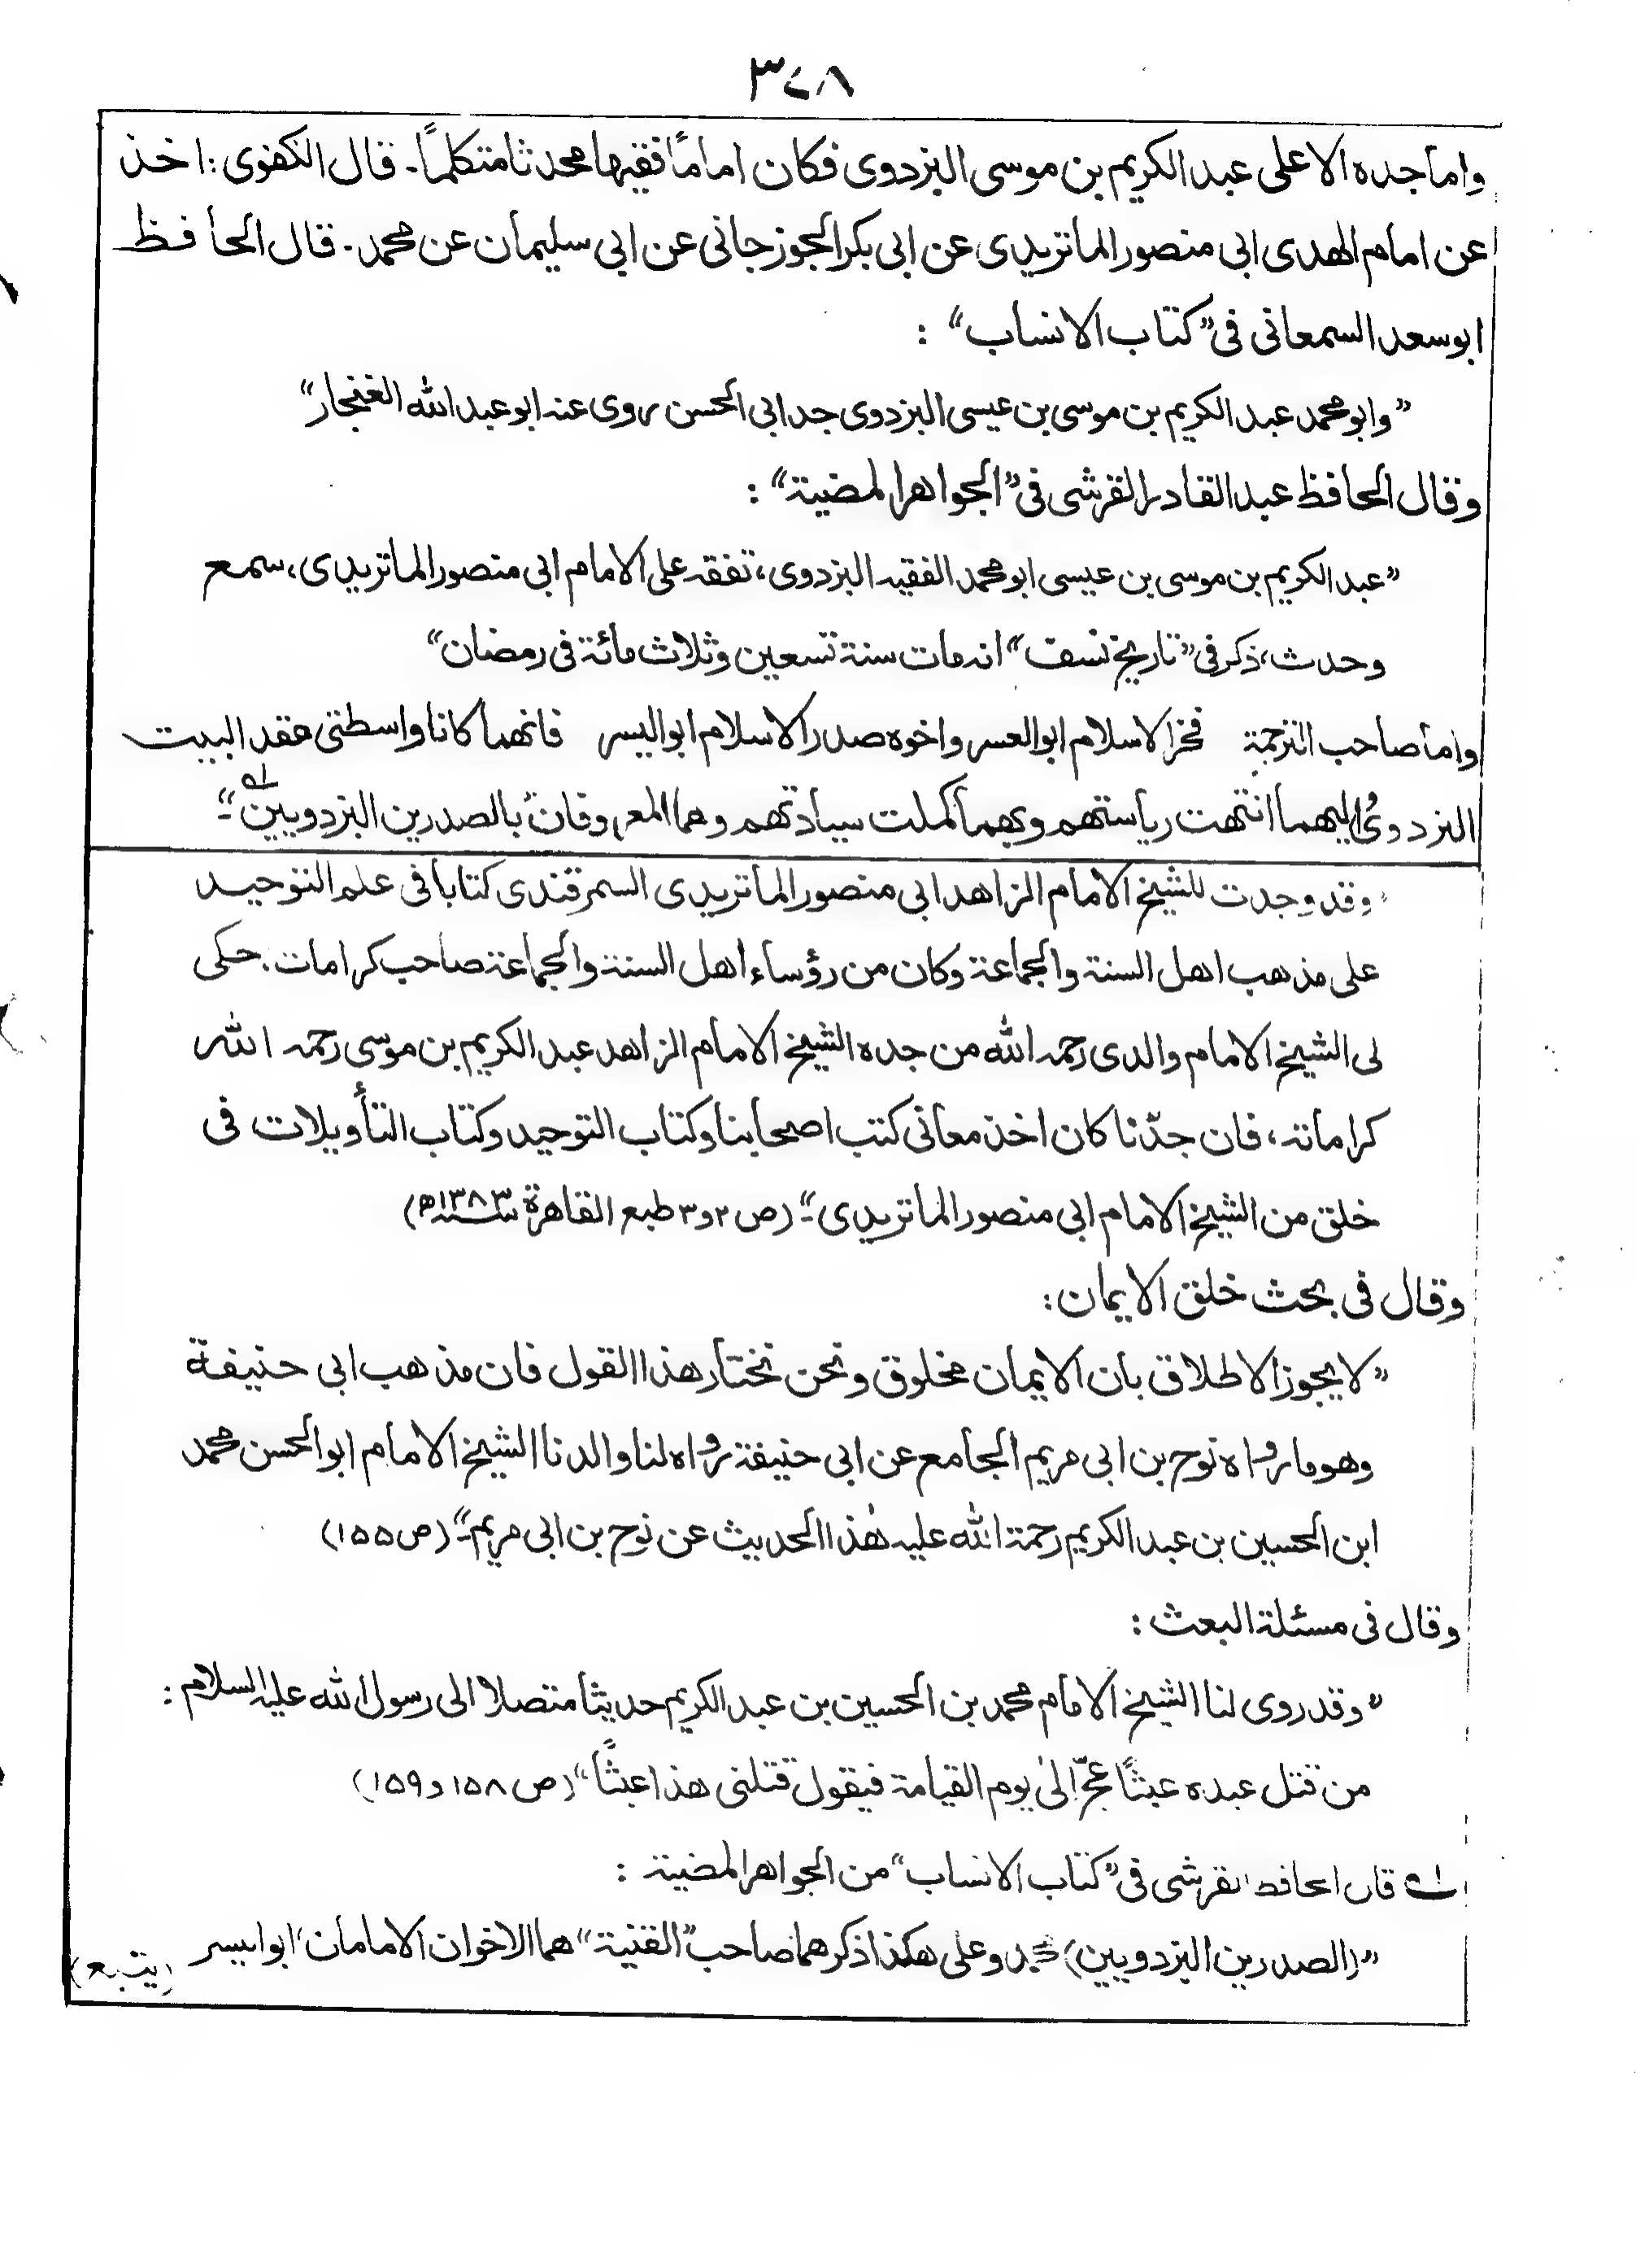 ٣٤٨
واما جده الاعلى عبد الكريم بن موسى البزدوى فكان اماماً فقيها محدثا متكلماً۔ قال الكفوى: اخذ
عن امام الهدى ابى منصور الماتريدى عن ابى بكر الجوزجانى عن ابى سليمان عن محمد۔ قال الحافظ
ابو سعد السمعانى فى ”كتاب الانساب“ :
”وابو محمد عبد الكريم بن موسى بن عيسى البزدوى جد ابى الحسن روى عنه ابو عبد الله الغنجار“
وقال الحافظ عبد القادر القرشى فى ”الجواهر المضية“ :
”عبد الكريم بن موسى بن عيسى ابو محمد الفقيه البزدوى، تفقه على الامام ابى منصور الماتريدى، سمع
وحدث، ذكر فى ”تاريخ نسف“ انه مات سنة تسعين وثلاث مائة فى رمضان“
واما صاحب الترجمة فخر الاسلام ابو العسر واخوه صدر الاسلام ابو اليسر فانهما كانا واسطتى عقد البيت
البزدوىُ اليهما انتهت رياستهم وبهما كملت سيادتهم وهما المعروفان بالصدرين البزدويين“ لـه
”وقد وجدت للشيخ الامام الزاهد ابى منصور الماتريدى السمرقندى كتابا فى علم التوحيد
على مذهب اهل السنة والجماعة وكان من رؤساء اهل السنة والجماعة صاحب كرامات. حكى
لى الشيخ الامام والدى رحمه الله من جده الشيخ الامام الزاهد عبد الكريم بن موسى رحمه الله
كراماته، فان جدّنا كان اخذ معانى كتب اصحابنا وكتاب التوحيد وكتاب التأويلات فى
خلق من الشيخ الامام ابى منصور الماتريدى“۔ (ص ٢ و ٣ طبع القاهرة سنة ١٣٨٣ھ)
وقال فى بحث خلق الايمان:
”لا يجوز الاطلاق بان الايمان مخلوق ونحن نختار هذا القول فان مذهب ابى حنيفة
وهو ما رواه نوح بن ابى مريم الجامع عن ابى حنيفة رواه لنا والدنا الشيخ الامام ابو الحسن محمد
ابن الحسين بن عبد الكريم رحمة الله عليه هٰذا الحديث عن نوح بن ابى مريم۔“ (ص ١٥٥)
وقال فى مسئلة البعث:
”وقد روى لنا الشيخ الامام محمد بن الحسين بن عبد الكريم حديثا متصلا الى رسول الله عليه السلام:
من قتل عبده عبثًا عجّ الىٰ يوم القيامة فيقول قتلنى هذا عبثًا“ (ص ١٥٨ و ١٥٩)
لـه قال الحافظ القرشى فى ”كتاب الانساب“ من الجواهر المضية :
”(الصدرين البزدويين) وعلى هكذا ذكرهما صاحب ”القنية“ هما الاخوان الامامان، ابو اليسر
(يتبع)